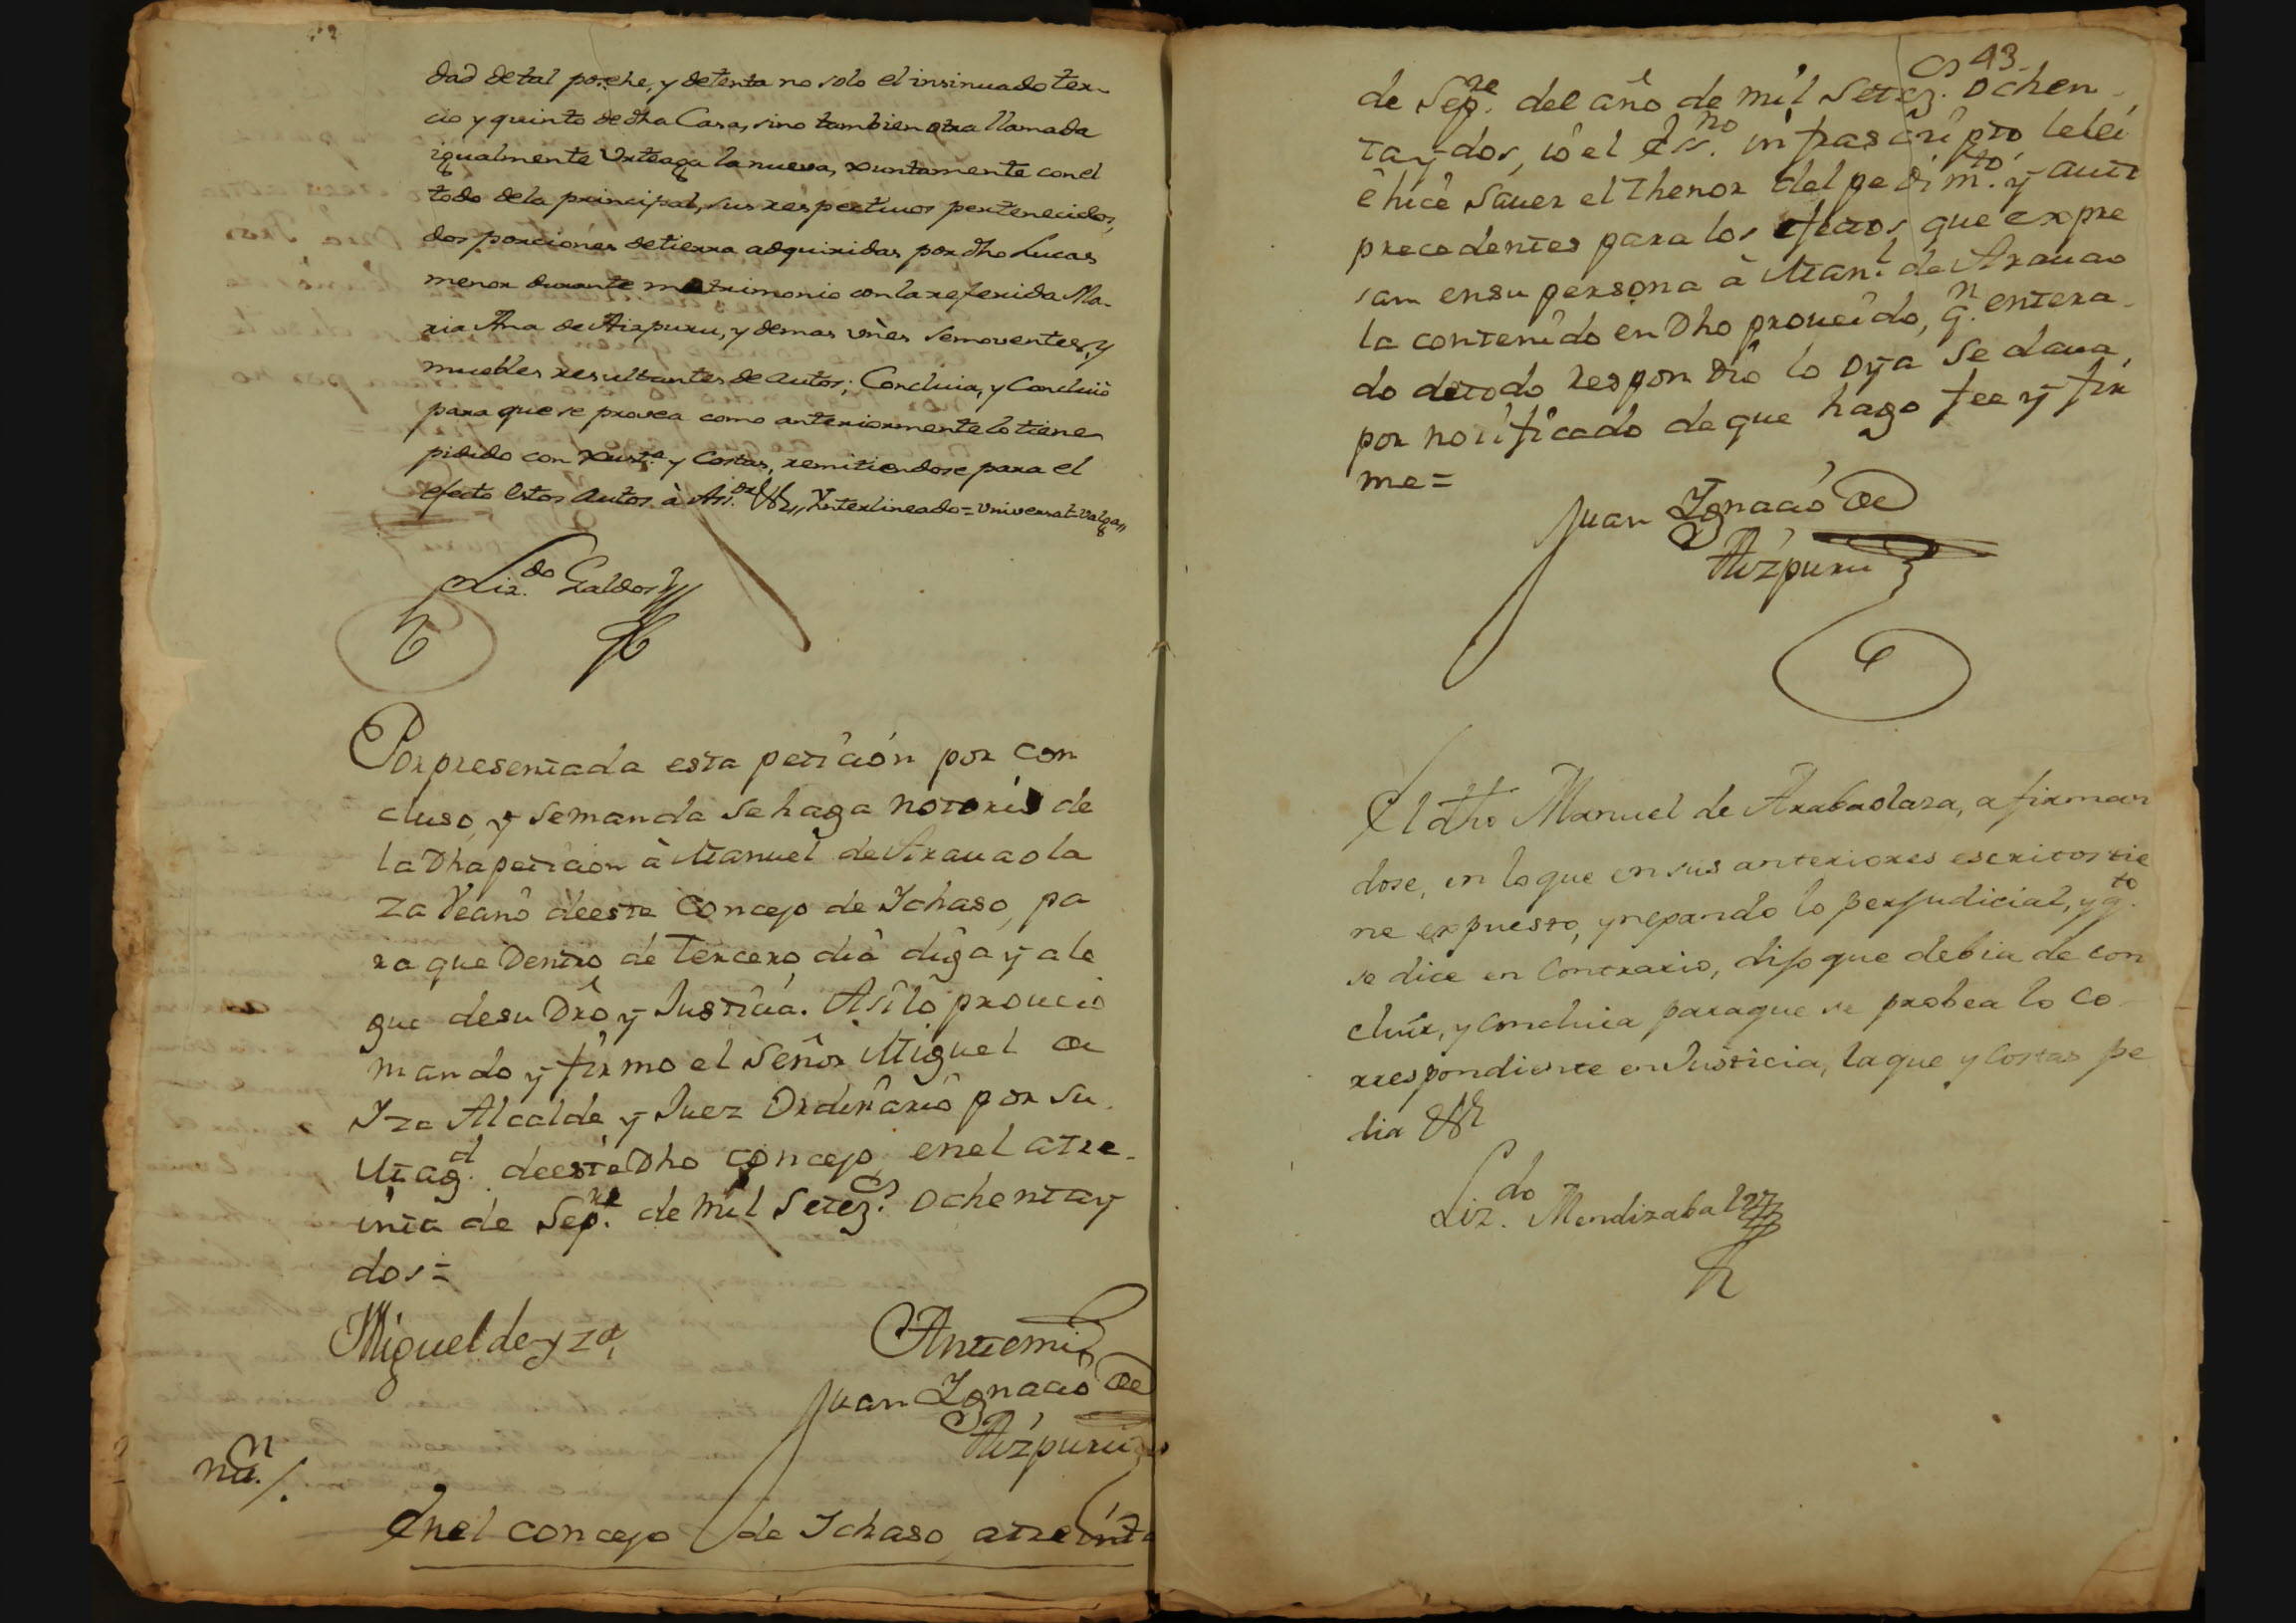 dad detal posehe, y detenta no solo el insinuado ter-
cio y quinto de dha Casa, sino tambien otra llamada
igualmente Urteaga la nueva, xuntamente con el
todo dela principal, sus respectivos pertenecidos,
dos porciones detierra adquiridas por dho Lucas
menor durante matrimonio con la referida Ma-
ria Ana de Aizpuru, y demas vnes semoventes, y
muebles resultantes de autos; Concluia, y Concluió
para que se provea como anteriormente lo tiene
pidido con Xusta. y Costas, remitiendose para el
efecto estos autos à Asr. &a, Ynterlineado = Universal = Valga,,
Liz.do Galdos
Por presentada esta petición por con
cluso, y semanda se haga notorio de
la Dha petición à Manuel de Arauaola
za Veano deeste Concejo de Ichaso, pa
ra que Dentro de tercero dia diga y ale
gue desu Dro y Justicia. Asi lo proueió
mando y firmo el Señor Miguel de
Yza Alcalde y Juez Ordinario por su
Magd. deeste Dho concejo, enel atre-
inta de Sepre. de mil Setezs. Ochentay
dos =
Miguel de yza,
Antemi
Juan Ignacio de
Aizpuru
non./.
Enel concejo de Ichaso, atreinta
43
de Sepre. del año de mil Setezs. Ochen-
tay dos, io el Essno. infrascripto lelei
è hicè Sauer el Thenor del pedimto. y auto
precedentes para los efectos que expre
san ensu persona à Manl. de Arauao
la contenido en Dho proueido, qn. entera-
do detodo respondio lo Oya Se daua,
por notificado de que hago fee y fir
me =
Juan Ignacio de
Aizpuru
El dho Manuel de Arabaolaza, afirman
dose, en loque en sus anteriores escritos tie
ne expuesto, y negando lo perjudicial, y qto.
se dice en Contrario, dijo que debia de con
cluir, y Concluia paraque se probea lo Co
rrespondiente en Justicia, laque y Costas pe
dia &a
Liz.do Mendizabal